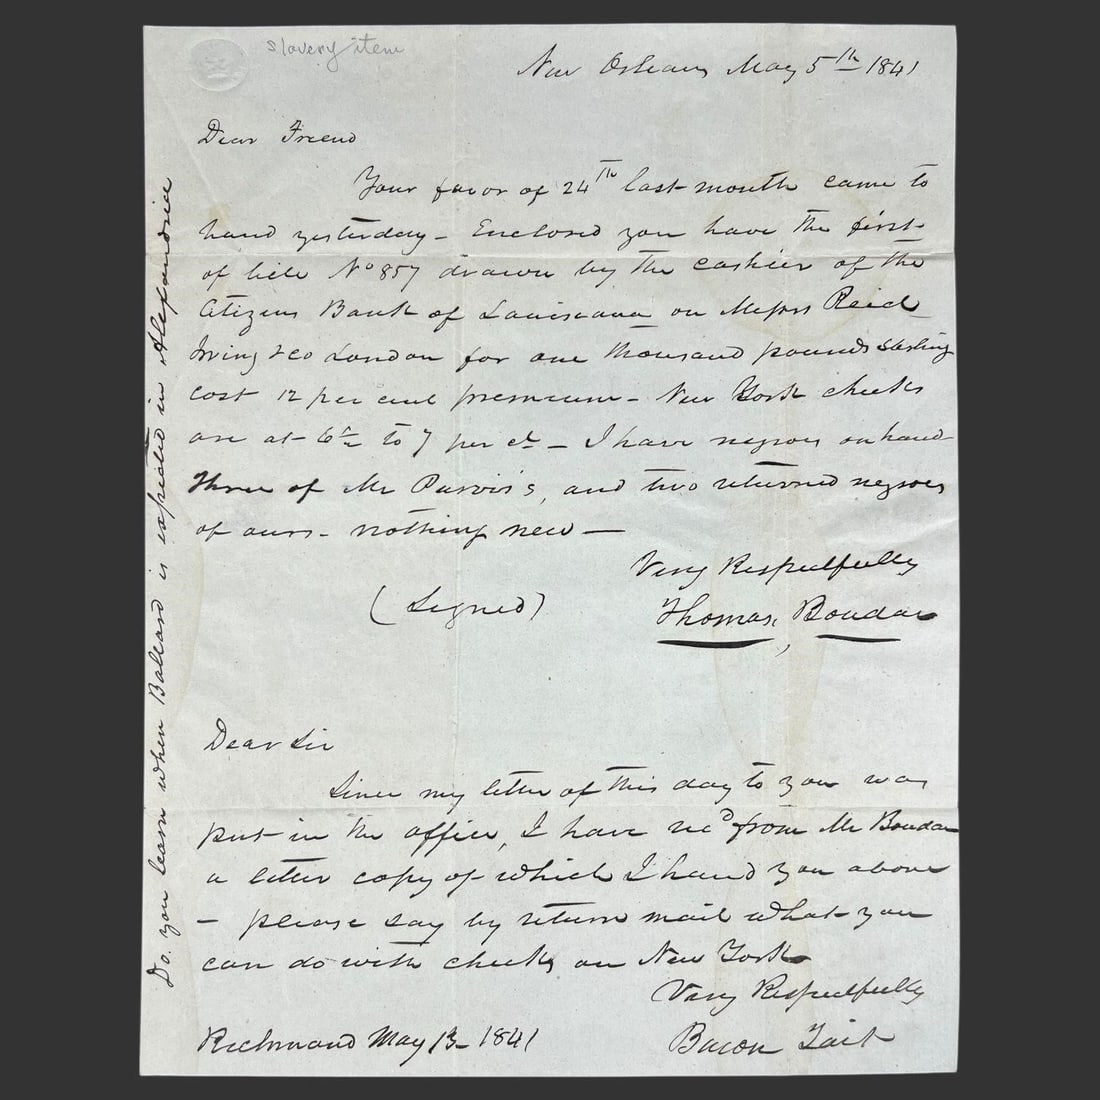 slavery item
New Orleans May 5th 1841
Dear Friend
Your favor of 24th last month came to
hand yesterday - Enclosed you have the first
of bill No 857 drawn by the cashier of the
Citizens Bank of Louisiana on Messrs Reid
Irving & co London for one thousand pounds Sterling
cost 12 per cent premium - New York checks
are at 6½ to 7 per ct - I have negroes on hand
three of Mr Purvis's, and two returned negroes
of ours - nothing new -
Very Respectfully
(Signed) Thomas Boudar
Dear Sir
Since my letter of this day to you was
put in the office, I have recd from Mr Boudar
a letter copy of which I hand you above
- please say by return mail what you
can do with checks on New York
Very Respectfully
Richmond May 13 - 1841 Bacon Tait
Do. you learn when Ballard is expected in Alexandria